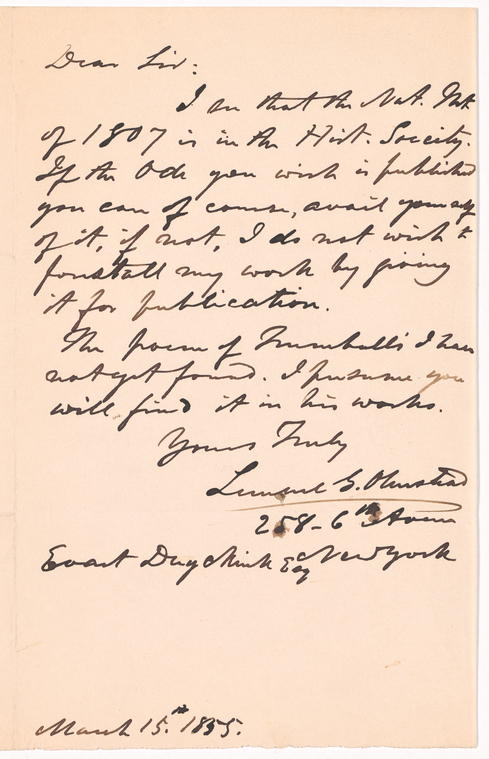 Dear Sir:
I see that the Nat. Int.
of 1807 is in the Hist. Society.
If the Ode you wish is published
you can of course, avail yourself
of it, if not, I do not wish to
forestall my work by giving
it for publication.
The poem of Trumbull's I have
not yet found. I presume you
will find it in his works.
Yours Truly
Lemuel G. Olmstead
258 - 6th Avenue
Evart Duyckink Esq New York
March 15.th 1855.